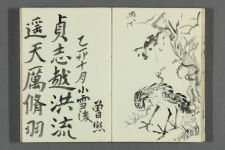 貞志越洪流
遥天厲脩羽
乙卯十月小雪後
曾熙